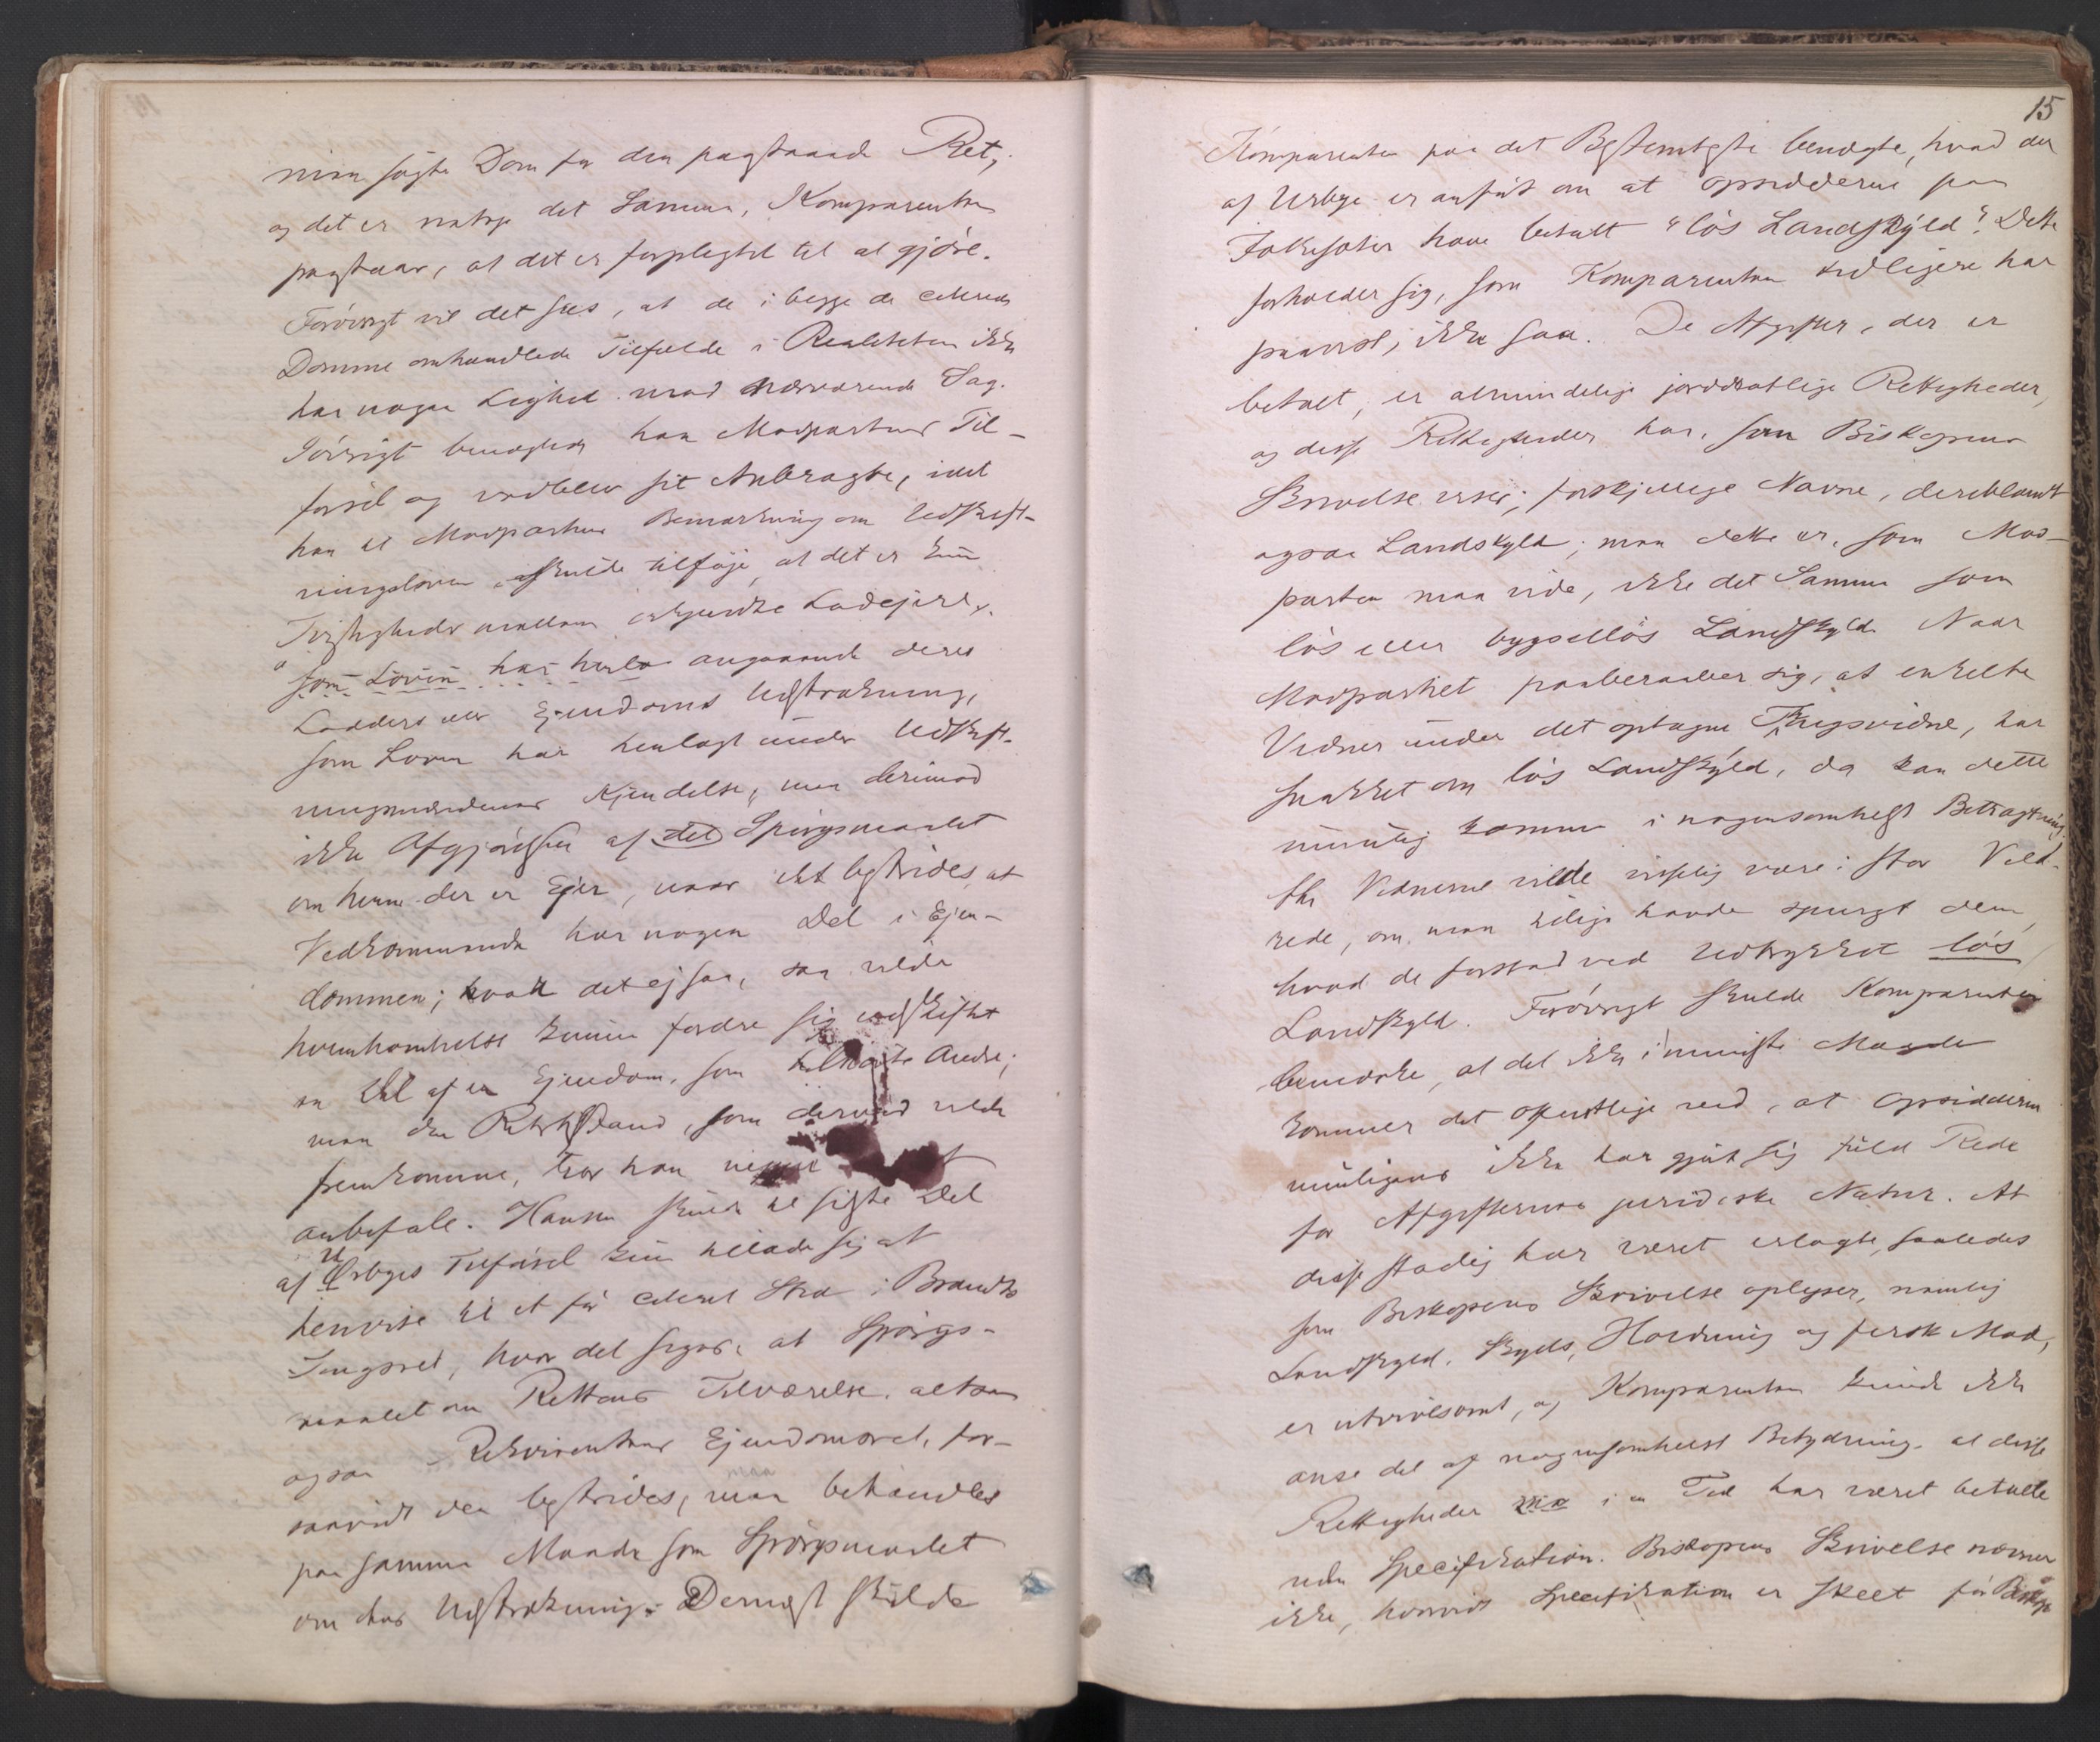 min søgte Dom for den paastaaede Ret;
og det er netop det Samme, Komparenten
paastaar, at det er forpligtet til at gjøre.
Forövrigt vil det sees, at de i begge de citerede
Domme omhandlede Tilfælde i Realiteten ikke
har nogen Lighed med nærværende Sag.
Iövrigt benegtede han Modpartens Til-
försel og vedblev sit Anbragte, idet
han til Modpartens Bemærkning om Udskift-
ningsloven skulde tilføje, at det er kun
Tvistigheder mellem erkjendte Lodejere,
"som Loven har henla angaaende deres
Lodders eller Ejendoms Udstrækning,
som Loven har henlagt under Udskift-
ningsmændenes Kjendelse, men derimod
ikke Afgjörelsen af det Spörgsmaalet
om hvem der er Ejer, naar det bestrides, at
Vedkommende har nogen Del i Ejen-
dommen; hvak det ej saa, saa vilde
hvemsomhelst kunne fordre sig udskiftet
en Del af en Ejendom, som tilhörte Andre;
men den Retstilstand, som derved vilde
fremkomme, tror han
anbefale. Hansen skulde til sidste Del
af Urbyes Tilförsel kun tillade sig at
henvise til et för citeret Sted i Brandts
Tingsret, hvor det siges, at Spörgs-
maalet om Rettens Tilværelse, altsaa
ogsaa Rekvirentens Ejendomsret, for-
saavidt den bestrides, maa behandles
paa samme Maade som Spörgsmaalet
om dens Udstrækning. Dernæst skulde
15
Komparenten paa det Bestemteste benegte, hvad der
af Urbye er anfört om at Opsidderne paa
have betalt "lös Landskyld". Dette
forholder sig, som Komparenten tidligere har
paavist, ikke saa. De Afgifter, der er
betalt, er almindelige jorddrotlige Rettigheder,
og disse Rettigheder har, som Biskopens
Skrivelse viser, forskjellige Navne, deriblandt
ogsaa Landskyld; men dette er, som Mod-
parten maa vide, ikke det Samme som
lös eller bygselløs Landskyld. Naar
Modpartiet paaberaaber sig, at enkelte
Vidner under det optagne Thingsvidne, har
snakket om lös Landskyld, da kan dette
umulig komme i nogensomhelst Betragtning.
thi Vidnerne vilde visselig være i stor Vild-
rede, om man havde spurgt dem,
hvad de forstod ved Udtrykket lös
Landskyld. Forövrigt skulde Komparenten
bemærke, at det ikke i mindste Maade
kommer det Offentlige ved, at Opsidderne
muligens ikke har gjort sig fuld Rede
for Afgifternes juridiske Natur. At
disse stadig har været erlagte saaledes
som Biskopens Skrivelse oplyser, nemlig
Landskyld, Skyds, Holdning og fersk Mad,
er utvivlsomt, og Komparenten kunde ikke
anse det af nogensomhelst Betydning, at disse
Rettigheder i en Tid har været betalte
uden Specifikation. Biskopens Skrivelse nævner
ikke, hvorvidt Specifikation er skeet för Biskop